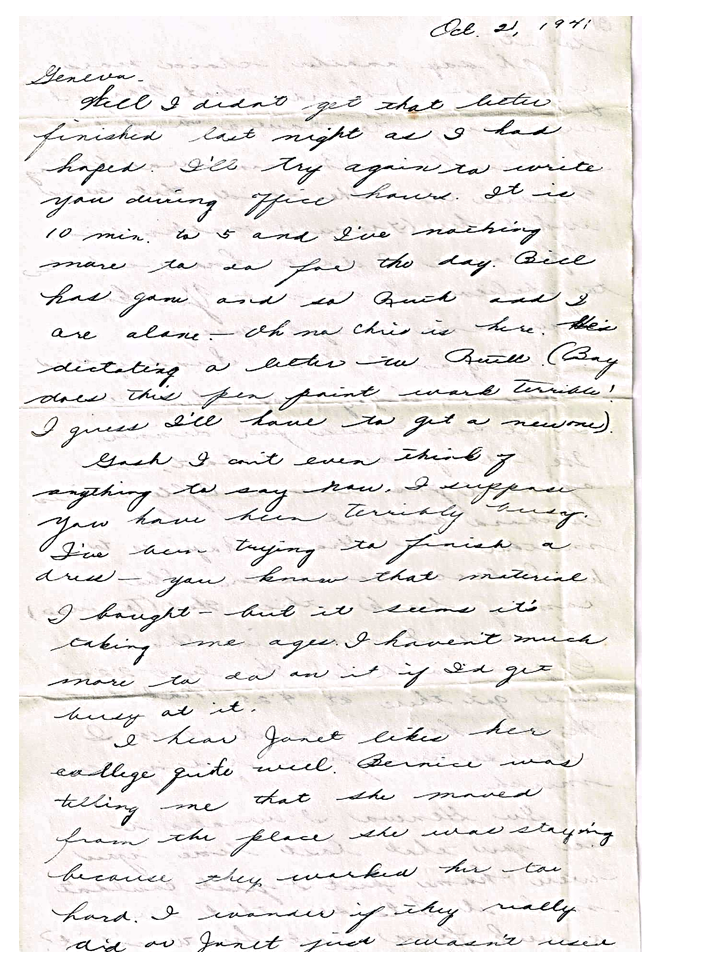 Oct. 21, 1941
Geneva-
Well I didn't get that letter
finished last night as I had
hoped. I'll try again to write
you during office hours. It is
10 min. to 5 and I've nothing
more to do for the day. Bill
has gone and so Ruth and I
are alone - Oh no Chris is here. He's
dictating a letter to Ruth. (Boy
does this pen point work terrible!
I guess I'll have to get a new one).
Gosh I can't even think of
anything to say now. I suppose
you have been terribly busy.
I've been trying to finish a
dress - you know that material
I bought - but it seems it's
taking me ages. I haven't much
more to do on it if I'd get
busy at it.
I hear Janet likes her
college quite well. Bernice was
telling me that she moved
from the place she was staying
because they worked her too
hard. I wonder if they really
did or Janet just wasn't used